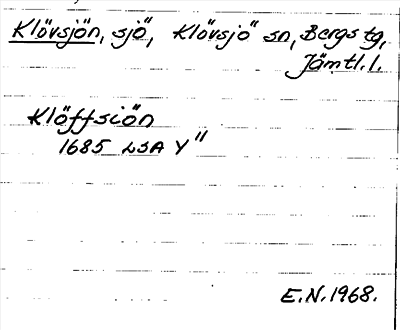 Klövsjön, sjö, Klövsjö sn, Bergs tg,
Jämtl.l.
Klöffsiön
1685 LSA Y"
E.N.1968.